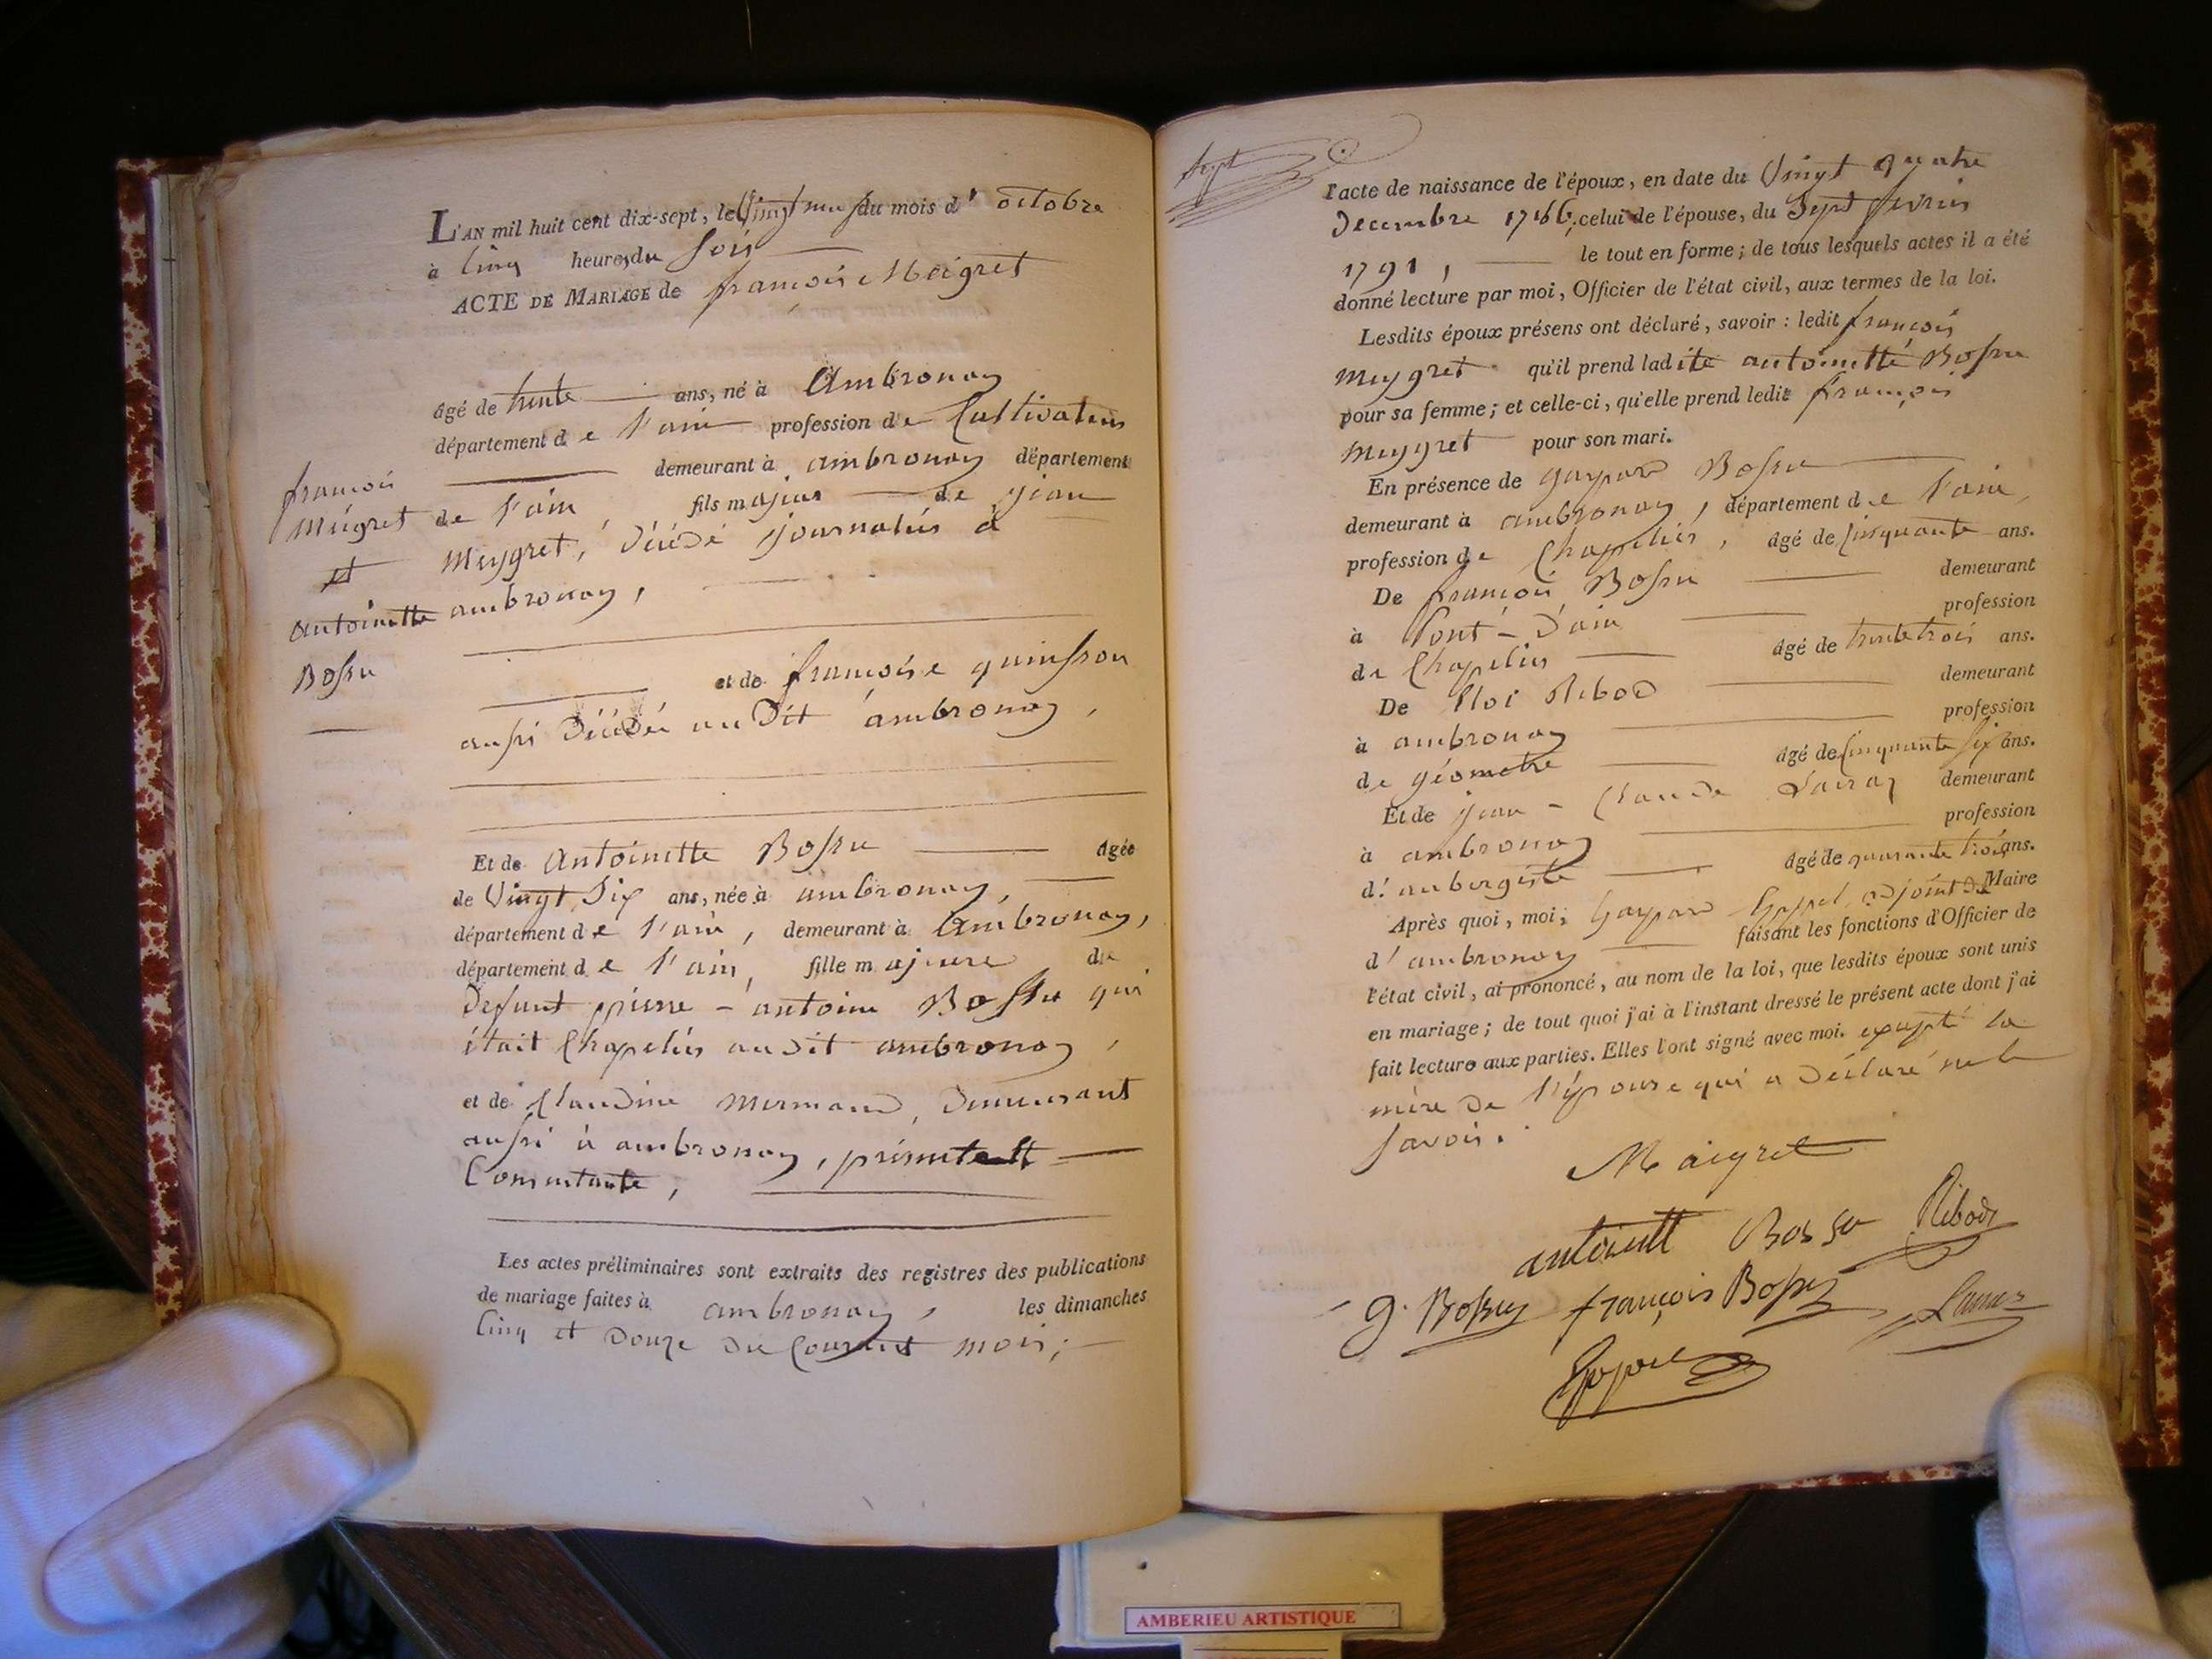 L'AN mil huit cent dix-sept, le Vingt neuf du mois d'octobre
à Cinq heures du soir
ACTE DE MARIAGE de françois Meigret
âgé de trente ans, né à Ambronay
département de l'ain profession de Cultivateur
demeurant à ambronay département
de l'ain fils majeur de jean
Meygret, décédé journalier à
ambronay,
et de françoise quinsson
aussi décédée audit ambronay,
françois
Meigret
et
antoinette
Bossu
Et de Antoinette Bossu âgée
de Vingt Six ans, née à ambronay,
département de l'ain, demeurant à Ambronay,
département de l'ain, fille majeure de
Defunt pierre-antoine Bossu qui
était Chapelier audit ambronay,
et de Claudine Mermand, Demeurant
aussi à ambronay, présente et
Consentante,
Les actes préliminaires sont extraits des registres des publications
de mariage faites à ambronay, les dimanches
Cinq et Douze du Courant mois;
sept
l'acte de naissance de l'époux, en date du Vingt quatre
Decembre 1786, celui de l'épouse, du Sept fevrier
1791, le tout en forme; de tous lesquels actes il a été
donné lecture par moi, Officier de l'état civil, aux termes de la loi.
Lesdits époux présens ont déclaré, savoir : ledit françois
Meygret qu'il prend ladite antoinette Bossu
pour sa femme; et celle-ci, qu'elle prend ledit françois
Meygret pour son mari.
En présence de gaspard Bossu
demeurant à ambronay, département de l'ain,
profession de Chapelier, âgé de Cinquante ans.
De françois Bossu demeurant
à Pont-d'ain profession
de Chapelier âgé de trente trois ans.
De Eloi Ribod demeurant
à ambronay profession
de géometre âgé de Cinquante Six ans.
Et de jean-Claude demeurant
à ambronay profession
d'aubergiste âgé de quarante trois ans.
Après quoi, moi, Gaspard adjoint du Maire
d'ambronay faisant les fonctions d'Officier de
l'état civil, ai prononcé, au nom de la loi, que lesdits époux sont unis
en mariage; de tout quoi j'ai à l'instant dressé le présent acte dont j'ai
fait lecture aux parties. Elles l'ont signé avec moi. excepté la
mère de l'épouse qui a déclaré ne le
savoir.
Maigret
antoinett Bossu Ribod
g. Bossu françois Bossu
AMBERIEU ARTISTIQUE